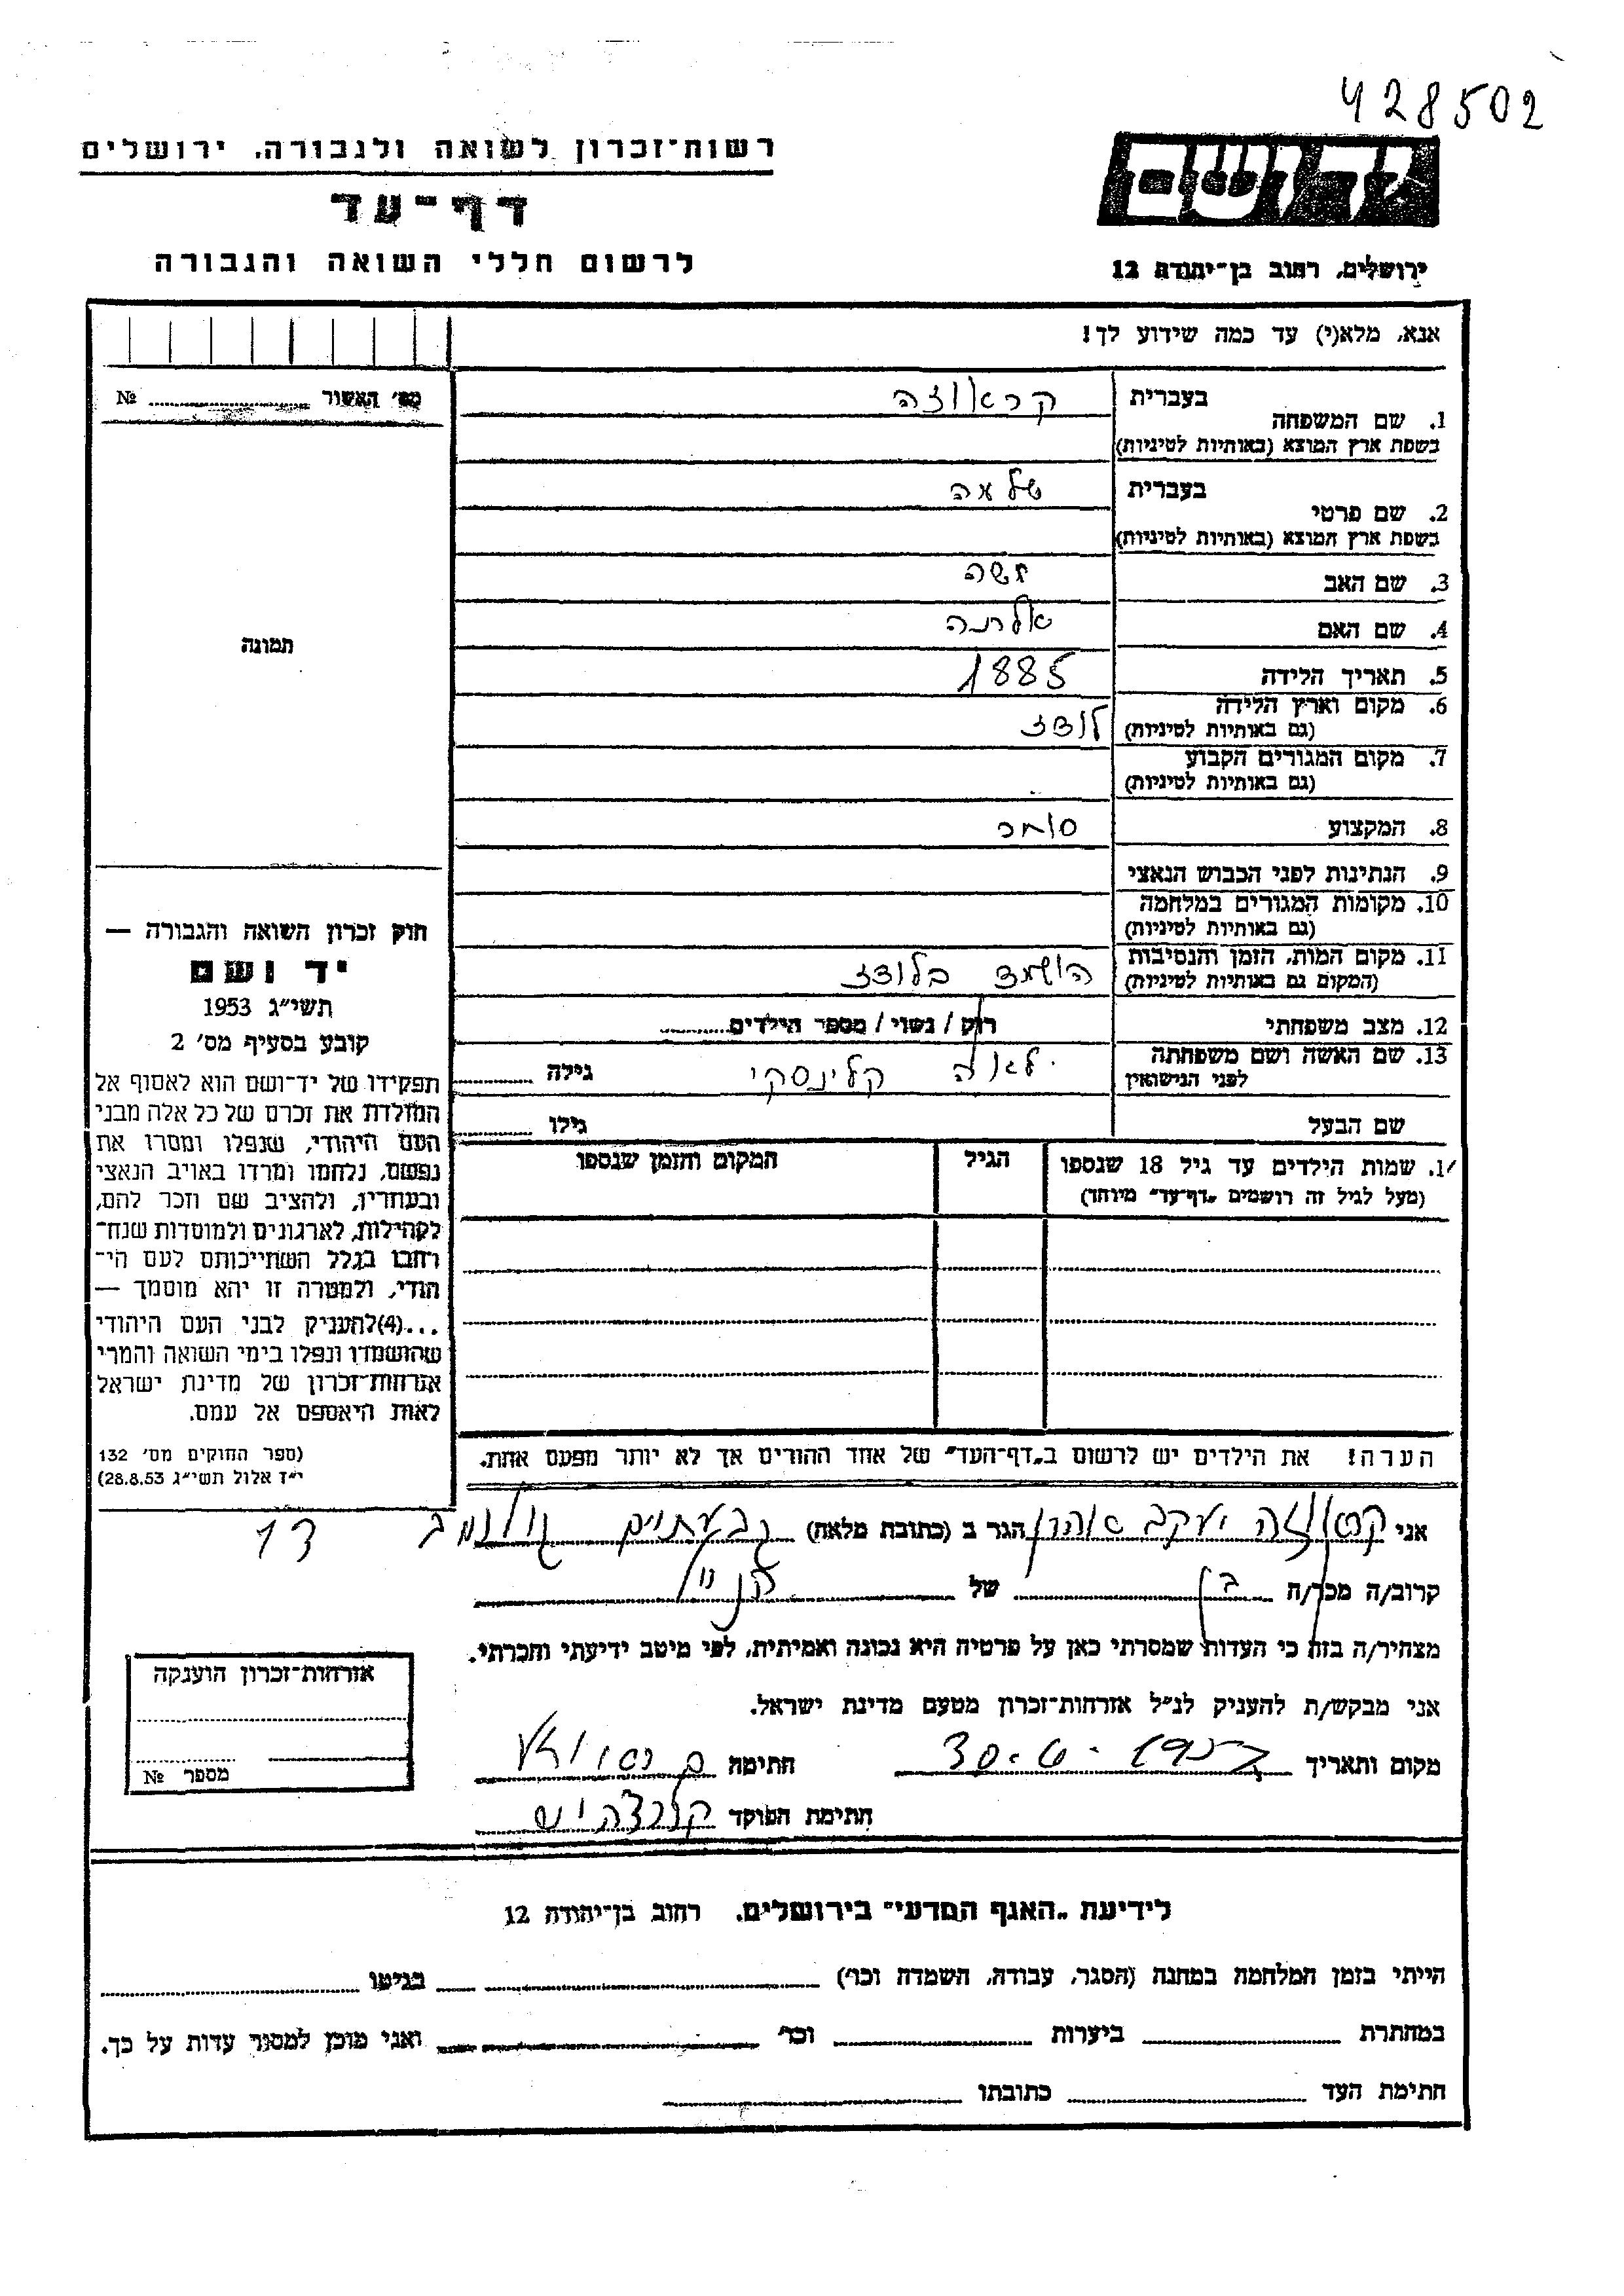 428502
יד ושם
רשות־זכרון לשואה ולגבורה, ירושלים
דף־עד
ירושלים, רחוב בן־יהודה 12
לרשום חללי השואה והגבורה
אנא, מלא(י) עד כמה שידוע לך!
מס' האשור № ..........
1. שם המשפחה בעברית
בשפת ארץ המוצא (באותיות לטיניות)
2. שם פרטי בעברית שלמה
בשפת ארץ המוצא (באותיות לטיניות)
3. שם האב משה
4. שם האם
5. תאריך הלידה 1885
6. מקום וארץ הלידה לודז
(גם באותיות לטיניות)
7. מקום המגורים הקבוע
(גם באותיות לטיניות)
8. המקצוע סוחר
9. הנתינות לפני הכבוש הנאצי
10. מקומות המגורים במלחמה
(גם באותיות לטיניות)
11. מקום המות, הזמן והנסיבות הושמד בלודז
(המקום גם באותיות לטיניות)
12. מצב משפחתי רוק / נשוי / מספר הילדים..........
13. שם האשה ושם משפחתה לאה קלינסקי גילה ..........
לפני הנישואין
שם הבעל גילו ..........
תמונה
חוק זכרון השואה והגבורה —
יד ושם
תשי״ג 1953
קובע בסעיף מס' 2
תפקידו של יד־ושם הוא לאסוף אל
המולדת את זכרם של כל אלה מבני
העם היהודי, שנפלו ומסרו את
נפשם, נלחמו ומרדו באויב הנאצי
ובעוזריו, ולהציב שם וזכר להם,
לקהילות, לארגונים ולמוסדות שנח־
רבו בגלל השתייכותם לעם הי־
הודי, ולמטרה זו יהא מוסמך —
...(4)להעניק לבני העם היהודי
שהושמדו ונפלו בימי השואה והמרי
אזרחות־זכרון של מדינת ישראל
לאות היאספם אל עמם.
(ספר החוקים מס' 132
י״ז אלול תשי״ג 28.8.53)
1. שמות הילדים עד גיל 18 שנספו הגיל המקום והזמן שנספו
(מעל לגיל זה רושמים „דף־עד״ מיוחד)
הערה! את הילדים יש לרשום ב„דף־העד״ של אחד ההורים אך לא יותר מפעם אחת.
אני יעקב אהרן הגר ב (כתובת מלאה) גבעתיים 17
קרוב/ה מכר/ה בן של הנ״ל
מצהיר/ה בזה כי העדות שמסרתי כאן על פרטיה היא נכונה ואמיתית, לפי מיטב ידיעתי והכרתי.
אני מבקש/ת להעניק לנ״ל אזרחות־זכרון מטעם מדינת ישראל.
מקום ותאריך 30.6.1957 חתימה
חתימת הפוקד
אזרחות־זכרון הוענקה
מספר №
לידיעת „האגף המדעי״ בירושלים, רחוב בן־יהודה 12
הייתי בזמן המלחמה במחנה (הסגר, עבודה, השמדה וכו') .......... בגיטו ..........
במחתרת .......... ביערות .......... וכו' .......... ואני מוכן למסור עדות על כך.
חתימת העד .......... כתובתו ..........